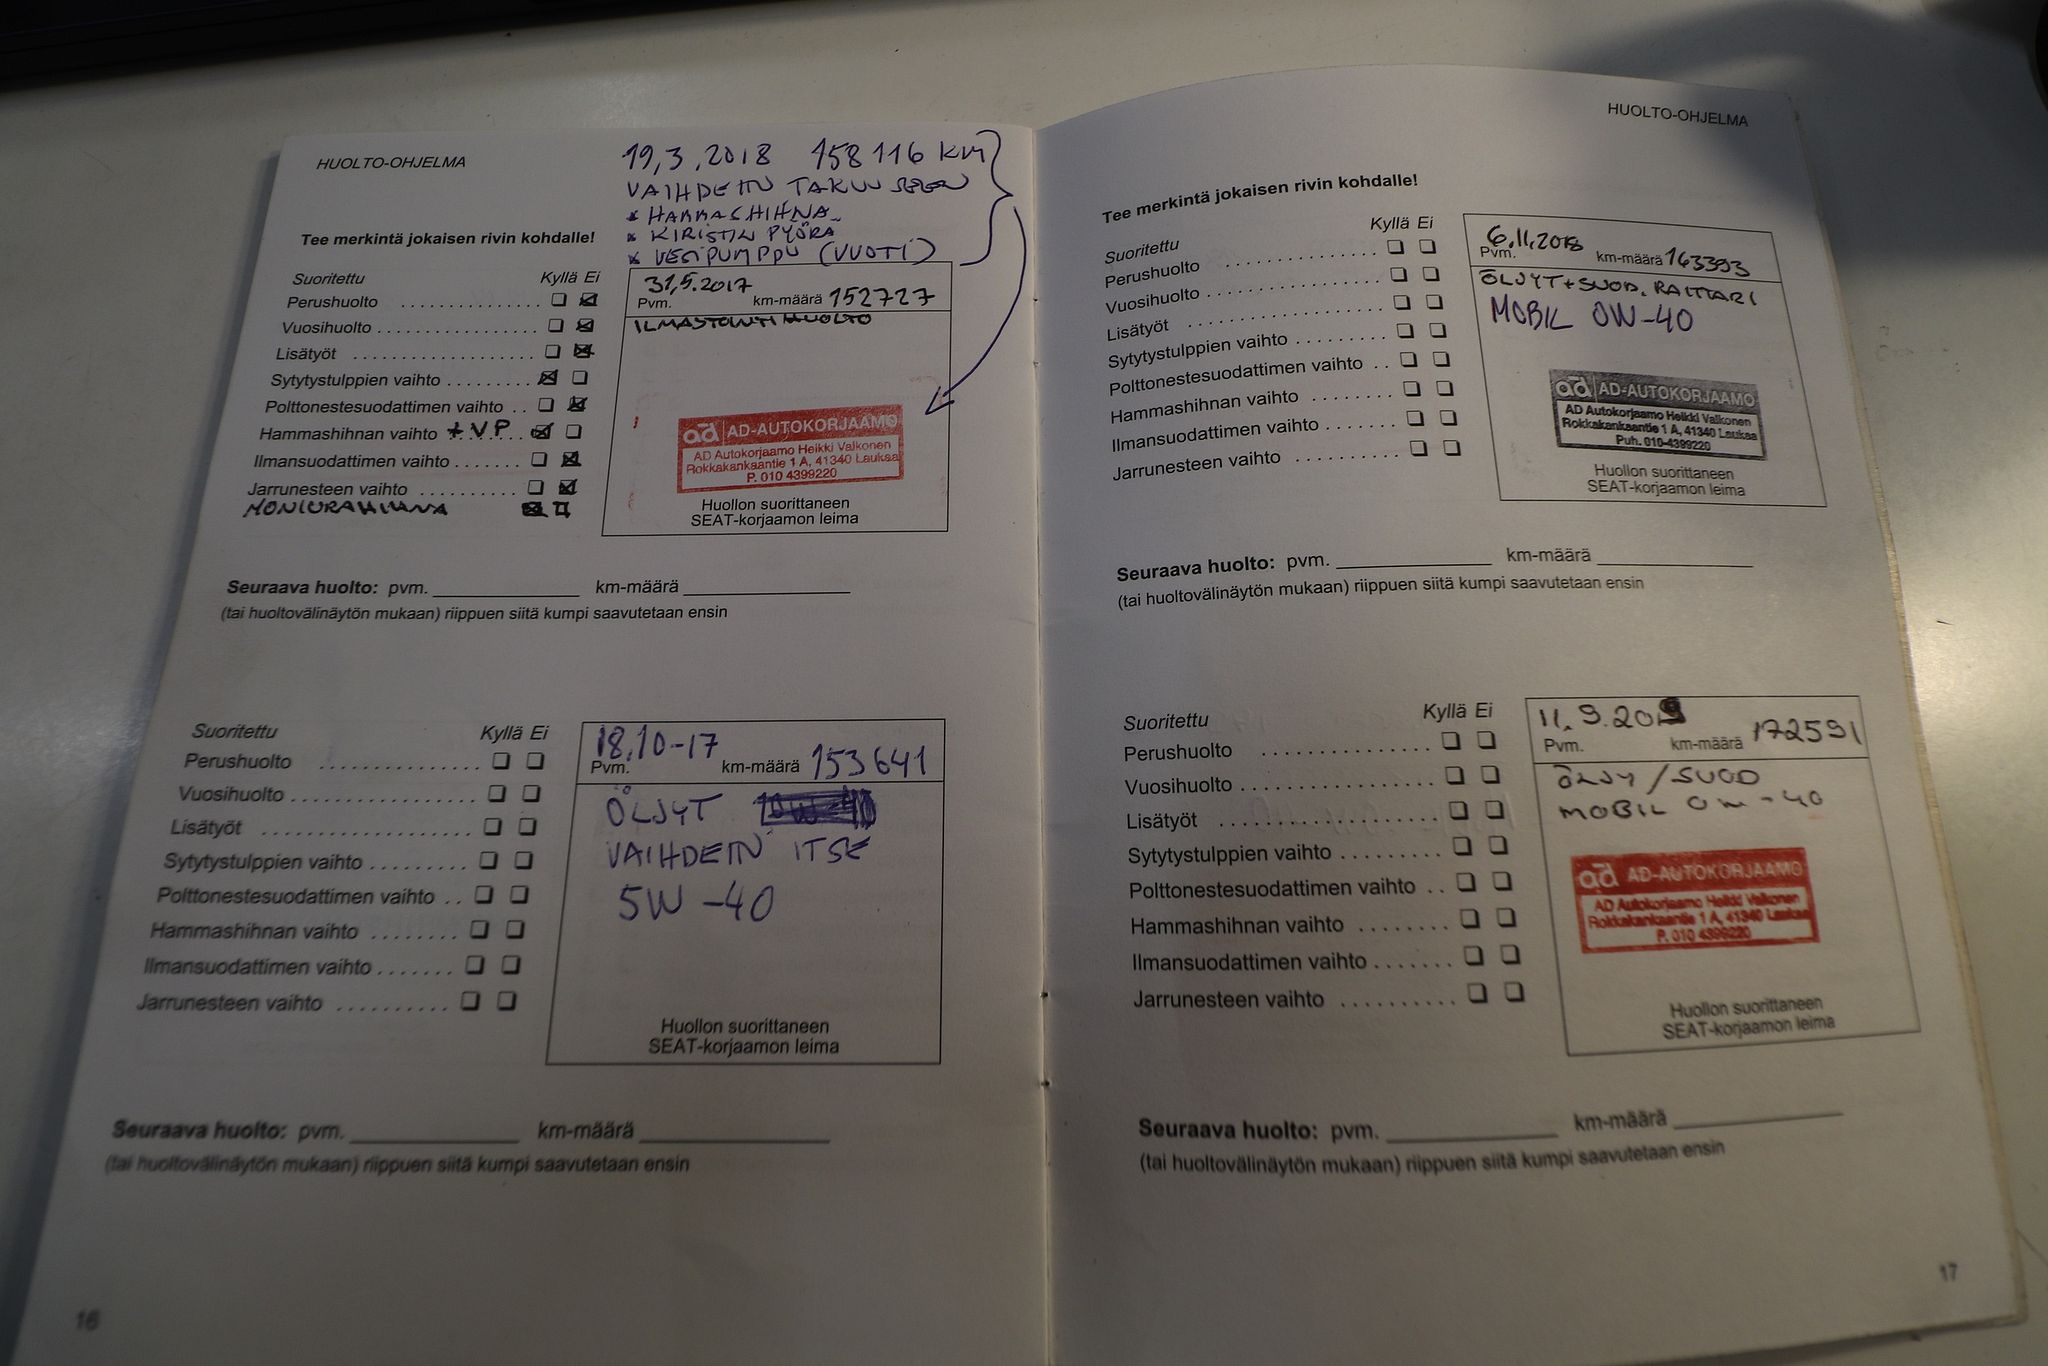 HUOLTO-OHJELMA
19,3,2018 158116 KM
VAIHDETTU TAKUUSEEN
* HAMMASHIHNA
* KIRISTIN PYÖRÄ
* VESIPUMPPU (VUOTI)
Tee merkintä jokaisen rivin kohdalle!
Suoritettu Kyllä Ei
Perushuolto
Vuosihuolto
Lisätyöt
Sytytystulppien vaihto
Polttonestesuodattimen vaihto
Hammashihnan vaihto + VP
Ilmansuodattimen vaihto
Jarrunesteen vaihto
MONIURAHIHNA
31,5.2017
Pvm. km-määrä 152727
ILMASTOINTIHUOLTO
ad AD-AUTOKORJAAMO
AD Autokorjaamo Heikki Valkonen
Rokkakankaantie 1 A, 41340 Laukaa
P. 010 4399220
Huollon suorittaneen
SEAT-korjaamon leima
Seuraava huolto: pvm. km-määrä
(tai huoltovälinäytön mukaan) riippuen siitä kumpi saavutetaan ensin
Suoritettu Kyllä Ei
Perushuolto
Vuosihuolto
Lisätyöt
Sytytystulppien vaihto
Polttonestesuodattimen vaihto
Hammashihnan vaihto
Ilmansuodattimen vaihto
Jarrunesteen vaihto
18,10-17
Pvm. km-määrä 153641
ÖLJYT
VAIHDETTU ITSE
5W-40
Huollon suorittaneen
SEAT-korjaamon leima
Seuraava huolto: pvm. km-määrä
(tai huoltovälinäytön mukaan) riippuen siitä kumpi saavutetaan ensin
16
HUOLTO-OHJELMA
Tee merkintä jokaisen rivin kohdalle!
Suoritettu Kyllä Ei
Perushuolto
Vuosihuolto
Lisätyöt
Sytytystulppien vaihto
Polttonestesuodattimen vaihto
Hammashihnan vaihto
Ilmansuodattimen vaihto
Jarrunesteen vaihto
6,11,2018
Pvm. km-määrä 163393
ÖLJYT+SUOD. RAITTARI
MOBIL 0W-40
ad AD-AUTOKORJAAMO
AD Autokorjaamo Heikki Valkonen
Rokkakankaantie 1 A, 41340 Laukaa
Puh. 010-4399220
Huollon suorittaneen
SEAT-korjaamon leima
Seuraava huolto: pvm. km-määrä
(tai huoltovälinäytön mukaan) riippuen siitä kumpi saavutetaan ensin
Suoritettu Kyllä Ei
Perushuolto
Vuosihuolto
Lisätyöt
Sytytystulppien vaihto
Polttonestesuodattimen vaihto
Hammashihnan vaihto
Ilmansuodattimen vaihto
Jarrunesteen vaihto
11.9.2019
Pvm. km-määrä 172591
ÖLJY/SUOD
MOBIL 0W-40
ad AD-AUTOKORJAAMO
AD Autokorjaamo Heikki Valkonen
Rokkakankaantie 1 A, 41340 Laukaa
P. 010 4399220
Huollon suorittaneen
SEAT-korjaamon leima
Seuraava huolto: pvm. km-määrä
(tai huoltovälinäytön mukaan) riippuen siitä kumpi saavutetaan ensin
17